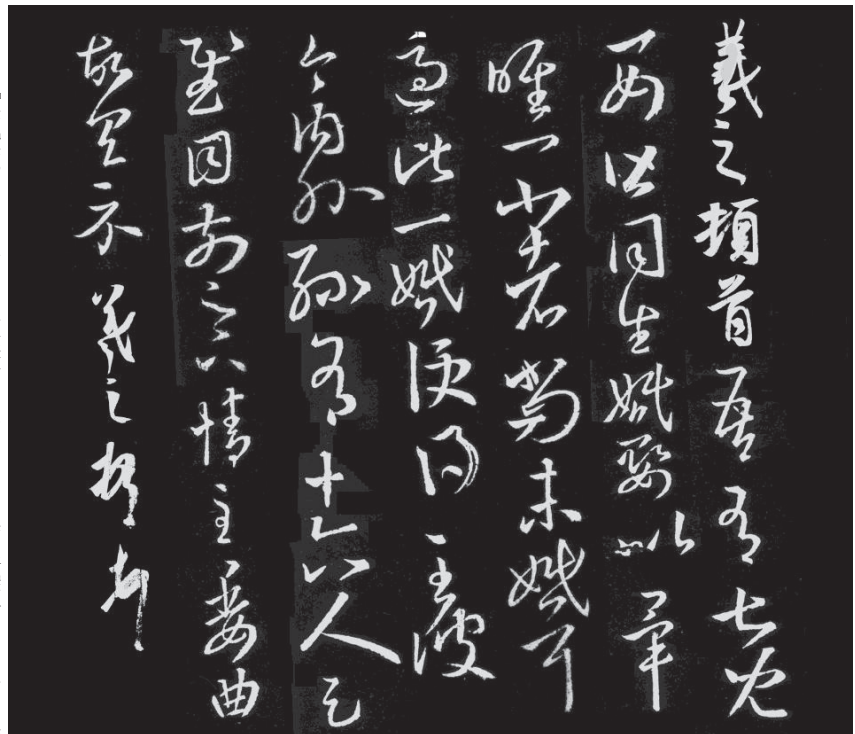 羲之頓首吾有七兒
一女皆同生婚娶以畢
唯一小者尚未婚耳
過此一婚便得至彼
今内外孫有十六人足
慰目前足下情至委曲
故具示羲之頓首